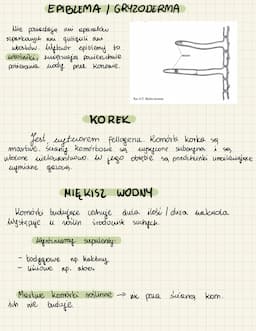 EPIBLEMA / GRYZODERMA
Nie posiada ani aparatów
szparkowych ani kutikuli ani
wosków. Wytwór epiblemy to
włośniki, zwiększają powierzchnię
pobierania wody przez korzenie.
KOREK
Jest wytworem fellogenu. Komórki korka są
martwe. Ściany komórkowe są wysycone suberyną i są
ułożone wielowarstwowo. W jego obrębie są przetchlinki umożliwiające
wymianę gazową.
MIĘKISZ WODNY
Komórki budujące zawierają dużą ilość / duża wakuola.
Występuje u roślin środowisk suchych.
Wyróżniamy sukulenty:
- łodygowe np. kaktusy
- liściowe np. aloes
Martwe komórki roślinne → nic poza ścianą kom.
ich nie buduje.